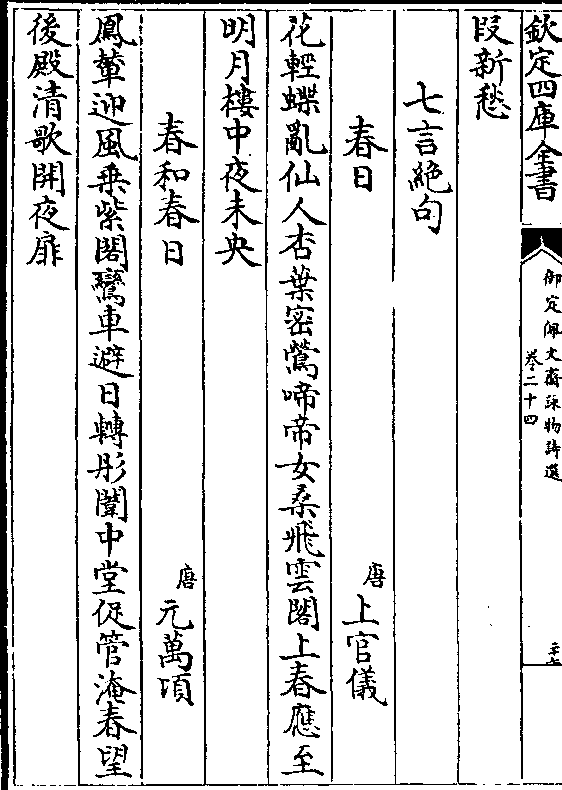 欽定四庫全書
御定佩文齋詠物詩選
卷二十四
段新愁
七言絶句
春日
唐 上官儀
花輕蝶亂仙人杏葉密鶯啼帝女桑飛雲閣上春應至
明月樓中夜未央
春和春日
唐 元萬頃
鳳輦迎風乘紫閣鸞車避日轉彤闈中堂促管淹春望
後殿清歌開夜扉